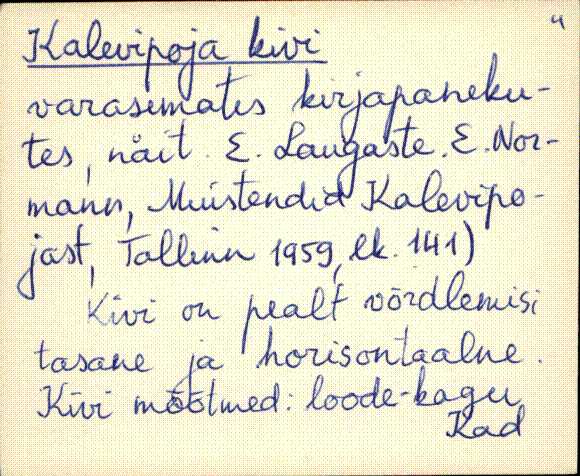 4
Kalevipoja kivi
varasemates kirjapaneku-
tes, näit. E. Laugaste. E. Nor-
mann, Muistendid Kalevipo-
jast, Tallinn 1959, lk. 141)
Kivi on pealt võrdlemisi
tasane ja horisontaalne.
Kivi mõõtmed: loode-kagu
Kad